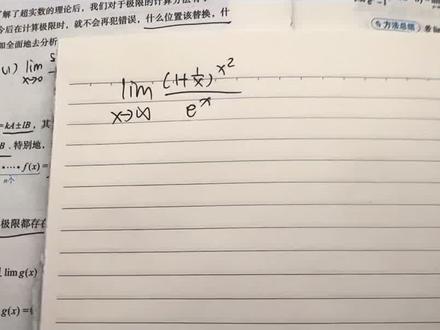 了解了超实数的理论后，我们对于极限的计算方法有
今后在计算极限时，就不会再犯错误，什么位置该替换，什
如全面地去分析
(1) lim
x→0
方法总结
=kA±lB，其
B．特别地，
·⋯·f(x)=
n个
极限都存在
lim g(x)
g(x)=
lim (1+1/x)^x²
x→∞ e^x